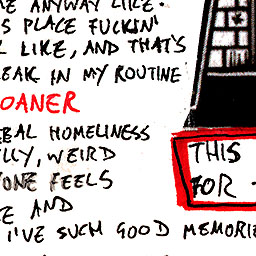 ME ANYWAY LIKE.
S PLACE FUCKIN'
LIKE, AND THAT'S
EAK IN MY ROUTINE
OANER
BAL HOMELINESS
LLY, WEIRD
YONE FEELS
E AND
I'VE SUCH GOOD MEMORIE
THIS
FOR